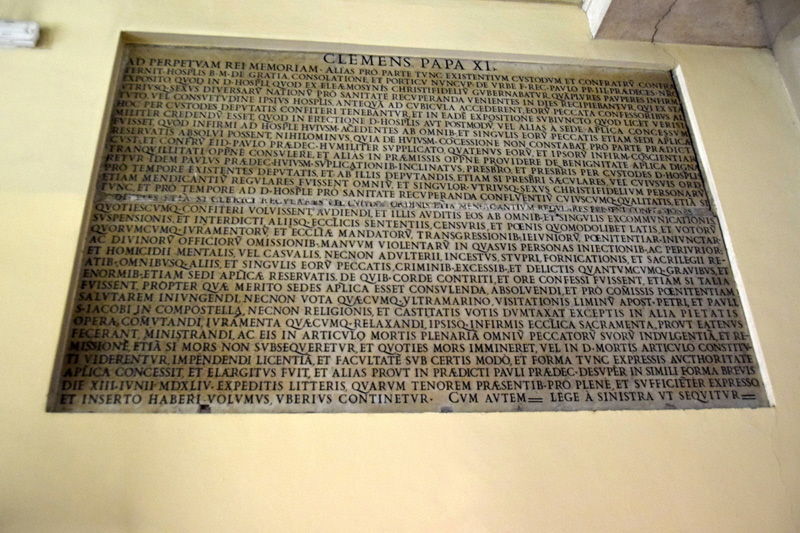 CLEMENS PAPA XI.
AD PERPETVAM REI MEMORIAM. ALIAS PRO PARTE TVNC EXISTENTIVM CVSTODVM ET CONFRATRV
TERNIT HOSPLIS B. M. DE GRATIA, CONSOLATIONE, ET PORTICV NVNCVP. DE VRBE F. REC. PAVLO PP. III. PRÆDECES.
EXPOSITO QVOD IN D. HOSPLI QVOD EX ELEÆMOSYNIS CHRISTIFIDELIV GVBERNABATVR QVAMPLVRES PAVPERES INFIRMI
VTRIVSQ. SEXVS DIVERSARV NATIONV PRO SANITATE RECVPERANDA VENIENTES IN DIES RECIPIEBANTVR QVI EX
TVTO, VEL CONSVETVDINE IPSIVS HOSPLIS, ANTEQVA AD CVBICVLA ACCEDERENT, EORV PECCATA CONFESSORIBVS
HOC PER CVSTODES DEPVTATIS CONFITERI TENEBANTVR, ET IN EADE EXPOSITIONE SVBIVNCTO QVOD LICET VERISI
MILITER CREDENDV ESSET, QVOD IN ERECTIONE D. HOSPLIS AVT POSTMODV, VEL ALIAS A SEDE APLICA CONCESSVM
FVISSET, QVOD INFIRMI AD HOSPLE HVIVSM. ACEDENTES AB OMNIB. ET SINGVLIS EORV PECCATIS ETIAM SEDI APLICÆ
RESERVATIS ABSOLVI POSSENT, NIHILOMINVS, QVIA DE HVIVSM. COCESSIONE NON CONSTABAT, PRO PARTE PRÆDICT.
CVST. ET CONFRV EID. PAVLO PRÆDEC. HVMILITER SVPPLICATO QVATENVS EORV, ET IPSORV INFIRM. COSCIENTIAR.
TRANQVILLITATI OPPNE CONSVLERE, ET ALIAS IN PRÆMISSIS OPPNE PROVIDERE DE BENIGNITATE APLICA DIGNA
RETVR IDEM PAVLVS PRÆDEC. HVIVSM. SVPLICATIONIB. INCLINATVS, PRESBRO ET PRESBRIS PER CVSTODES D. HOSP
PRO TEMPORE EXISTENTES DEPVTATIS, ET AB ILLIS DEPVTANDIS, ETIAM SI PRESBRI SÆCVLARES, VEL CVIVSVIS ORD
ETIAM MENDICANTIV REGVLARES FVISSENT OMNIV, ET SINGVLOR. VTRIVSQ. SEXVS CHRISTIFIDELIVM PERSONARV
TVNC, ET PRO TEMPORE AD D. HOSPLE PRO SANITATE RECVPERANDA CONFLVENTIV CVIVSCVMQ. QVALITATIS, ETIA SI
QVOTIESCVMQ. CONFITERI VOLVISSENT, AVDIENDI, ET ILLIS AVDITIS EOS AB OMNIB. ET SINGVLIS EXCOMMVNICATIONIS,
SVSPENSIONIS, ET INTERDICTI, ALIISQ. ECCLICIS SENTENTIIS, CENSVRIS, ET POENIS QVOMODOLIBET LATIS, ET VOTORV
QVORVMCVMQ. IVRAMENTORV ET ECCLIÆ MANDATORV TRANSGRESSIONIB. IEIVNIORV, POENITENTIAR. INIVNCTAR.
AC DIVINORV OFFICIORV OMISSIONIB. MANVVM VIOLENTARV IN QVASVIS PERSONAS INIECTIONIB. AC PERIVRIOR.
ET HOMICIDII MENTALIS, VEL CASVALIS, NECNON ADVLTERII, INCESTVS, STVPRI, FORNICATIONIS, ET SACRILEGII RE
ATIB. OMNIBVSQ. ALIIS, ET SINGVLIS EORV PECCATIS, CRIMINIB. EXCESSIB. ET DELICTIS QVANTVMCVMQ. GRAVIBVS, ET
ENORMIB. ETIAM SEDI APLICÆ RESERVATIS, DE QVIB. CORDE CONTRITI, ET ORE CONFESSI FVISSENT, ETIAM SI TALIA
FVISSENT, PROPTER QVÆ MERITO SEDES APLICA ESSET CONSVLENDA, ABSOLVENDI, ET PRO COMISSIS POENITENTIAM
SALVTAREM INIVNGENDI, NECNON VOTA QVÆCVMQ. VLTRAMARINO, VISITATIONIS LIMINV APOST. PETRI, ET PAVLI
S. IACOBI IN COMPOSTELLA, NECNON RELIGIONIS, ET CASTITATIS VOTIS DVMTAXAT EXCEPTIS IN ALIA PIETATIS
OPERA, COMVTANDI, IVRAMENTA QVÆCVMQ. RELAXANDI, IPSISQ. INFIRMIS ECCLICA SACRAMENTA, PROVT EATENVS
FECERANT, MINISTRANDI, AC EIS IN ARTICVLO MORTIS PLENARIA OMNIV PECCATORV SVORV INDVLGENTIA, ET RE
MISSIONE, ETIA SI MORS NON SVBSEQVERETVR, ET QVOTIES MORS IMMINERET, VEL IN D. MORTIS ARTICVLO CONSTITV
TI VIDERENTVR, IMPENDENDI LICENTIA, ET FACVLTATE SVB CERTIS MODO, ET FORMA TVNC EXPRESSIS AVCTHORITATE
APLICA CONCESSIT, ET ELARGITVS FVIT, ET ALIAS PROVT IN PRÆDICTI PAVLI PRÆDEC. DESVPER IN SIMILI FORMA BREVIS
DIE XIII. IVNII MDXLIV. EXPEDITIS LITTERIS, QVARVM TENOREM PRÆSENTIB. PRO PLENE, ET SVFFICIETER EXPRESSO
ET INSERTO HABERI VOLVMVS, VBERIVS CONTINETVR. CVM AVTEM LEGE A SINISTRA VT SEQVITVR